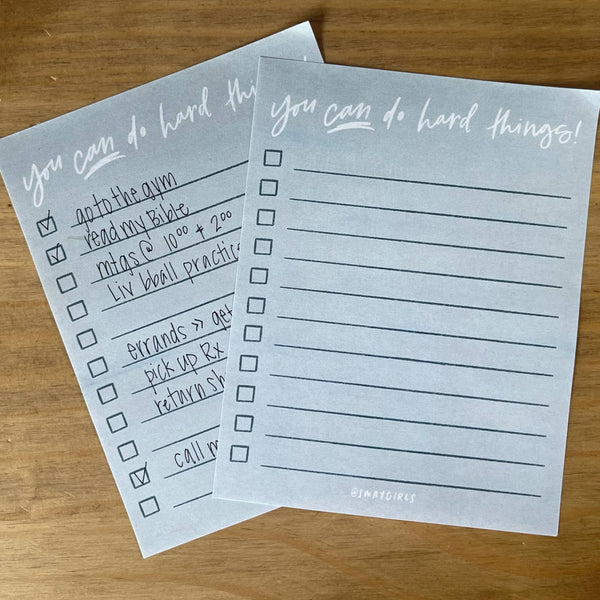 you can do hard thin
go to the gym
read my Bible
mtgs @ 10⁰⁰ + 2⁰⁰
Liv bball practice
errands >> get
pick up Rx
return sh
call m
you can do hard things!
@SWAYGIRLS